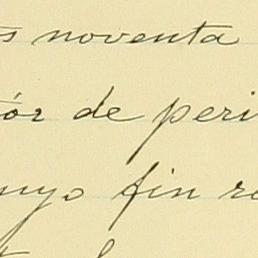 s noventa
tór de peri
uyo fin re